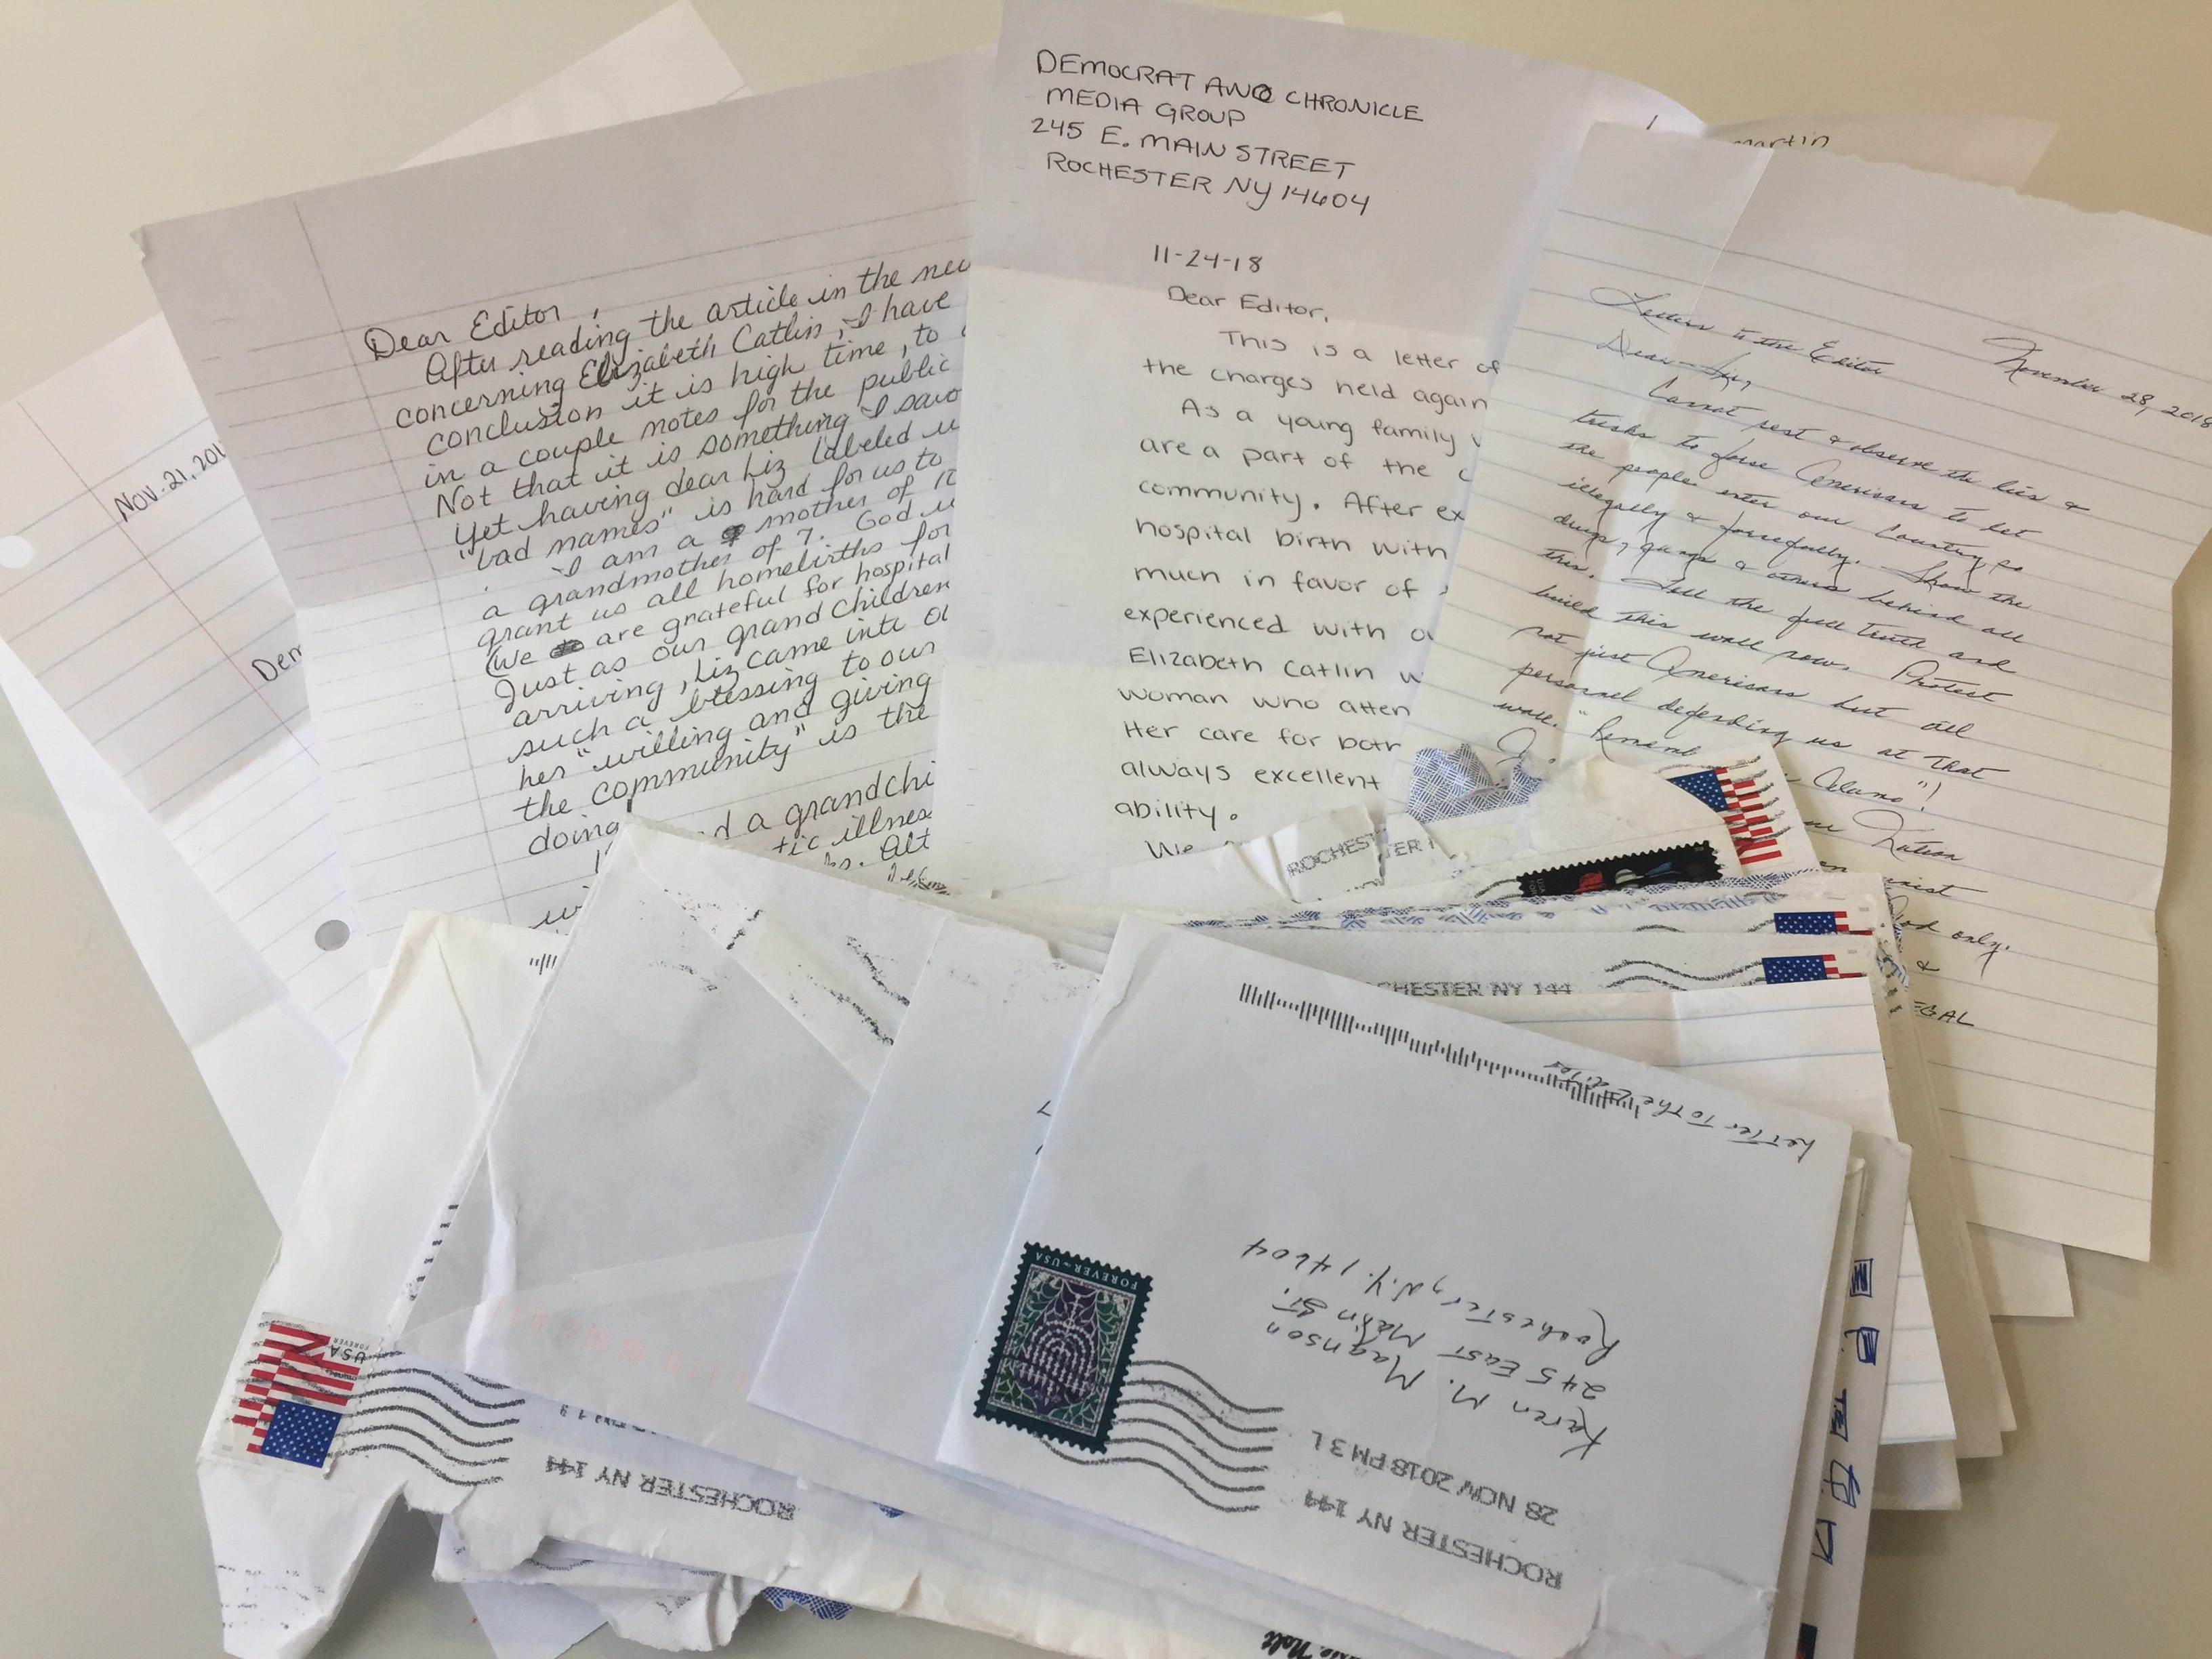 Nov. 21, 201
Dem
Dear Editor,
After reading the article in the new
concerning Elizabeth Catlin, I have
conclusion it is high time, to
in a couple notes for the public
Not that it is something I saw
Yet having dear Liz labeled
"bad names" is hard for us to
I am a mother of 10
a grandmother of 7. God
grant us all homebirths for
(We are grateful for hospital
Just as our grand children
arriving, Liz came into
such a blessing to our
her "willing and giving
the community" is the
doing
d a grandchi
tic illnes
Alt
DEMOCRAT AND CHRONICLE
MEDIA GROUP
245 E. MAIN STREET
ROCHESTER NY 14604
11-24-18
Dear Editor,
This is a letter of
the charges held again
As a young family
are a part of the
community. After ex
hospital birth with
much in favor of
experienced with
Elizabeth Catlin w
woman who atten
Her care for both
always excellent
ability.
We
martin
November 28, 2018
Letters to the Editor
Dear Sir,
Cannot rest & observe the lies &
tricks to force Americans to let
the people enter our Country, so
illegally & forcefully. Show the
drugs, gangs & others behind all
this. Tell the full truth and
build this wall now. Protect
not just Americans but all
personnel defending us at that
wall. "Rememb
Alamo"!
Nation
God only.
&
EGAL
ROCHESTER
TER
CHESTER NY 144
Letter To The Editor
FOREVER USA
Karen M. Magnson
245 East Main St.
Rochester, N.Y. 14604
ROCHESTER NY 144
28 NOV 2018 PM 3 L
USA
FOREVER
ROCHESTER NY 144
Nolt